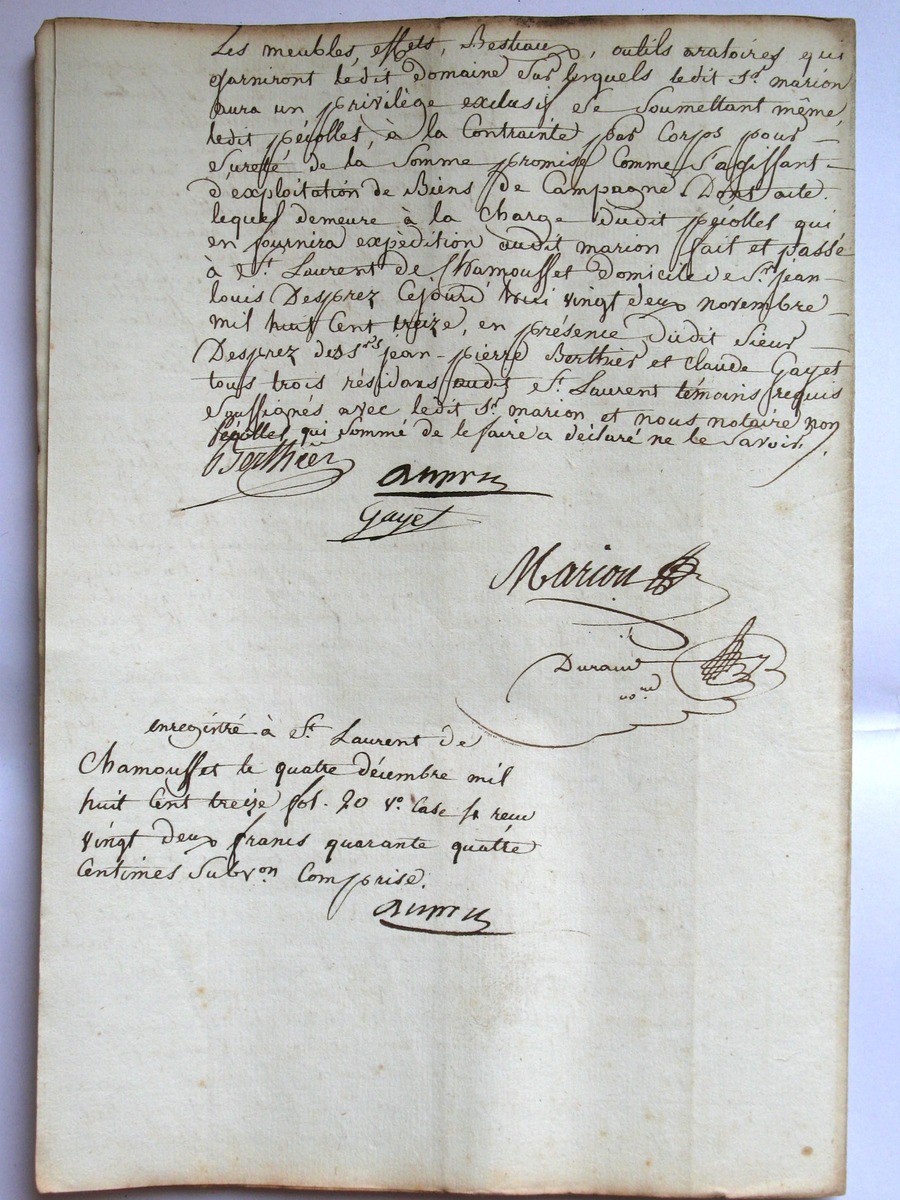 Les meubles, effets, Bestiaux, outils aratoires qui
garniront ledit domaine sur lesquels ledit Sr. marion
aura un privilège exclusif se soumettant même,
ledit péjollet, à la Contrainte par Corps pour
sureté de la Somme promise Comme S'agissant
d'exploitation de Biens de Campagne. Dont acte.
lequel demeure à la Charge dudit péjollet qui
en fournira expèdition audit marion fait et passé
à St. Laurent de Chamousset domicile de Sr. jean
louis Desprez Cejourd'huii vingt deux novembre
mil huit Cent treize, en présence dudit Sieur
Desprez des Srs jean-pierre Berthier et Claude Gayet
tous trois résidans audit St. Laurent témoins requis
Soussignés avec ledit Sr. marion et nous notaire non
péjollet qui Sommé de le faire a déclaré ne le Savoir.
Berthier
Gayet
Marion
Durand
nore
enregistré à St. Laurent de
Chamousset le quatre décembre mil
huit Cent treize fol. 20 vo. Case 4 recu
vingt deux francs quarante quatre
Centimes Subvon Comprise.